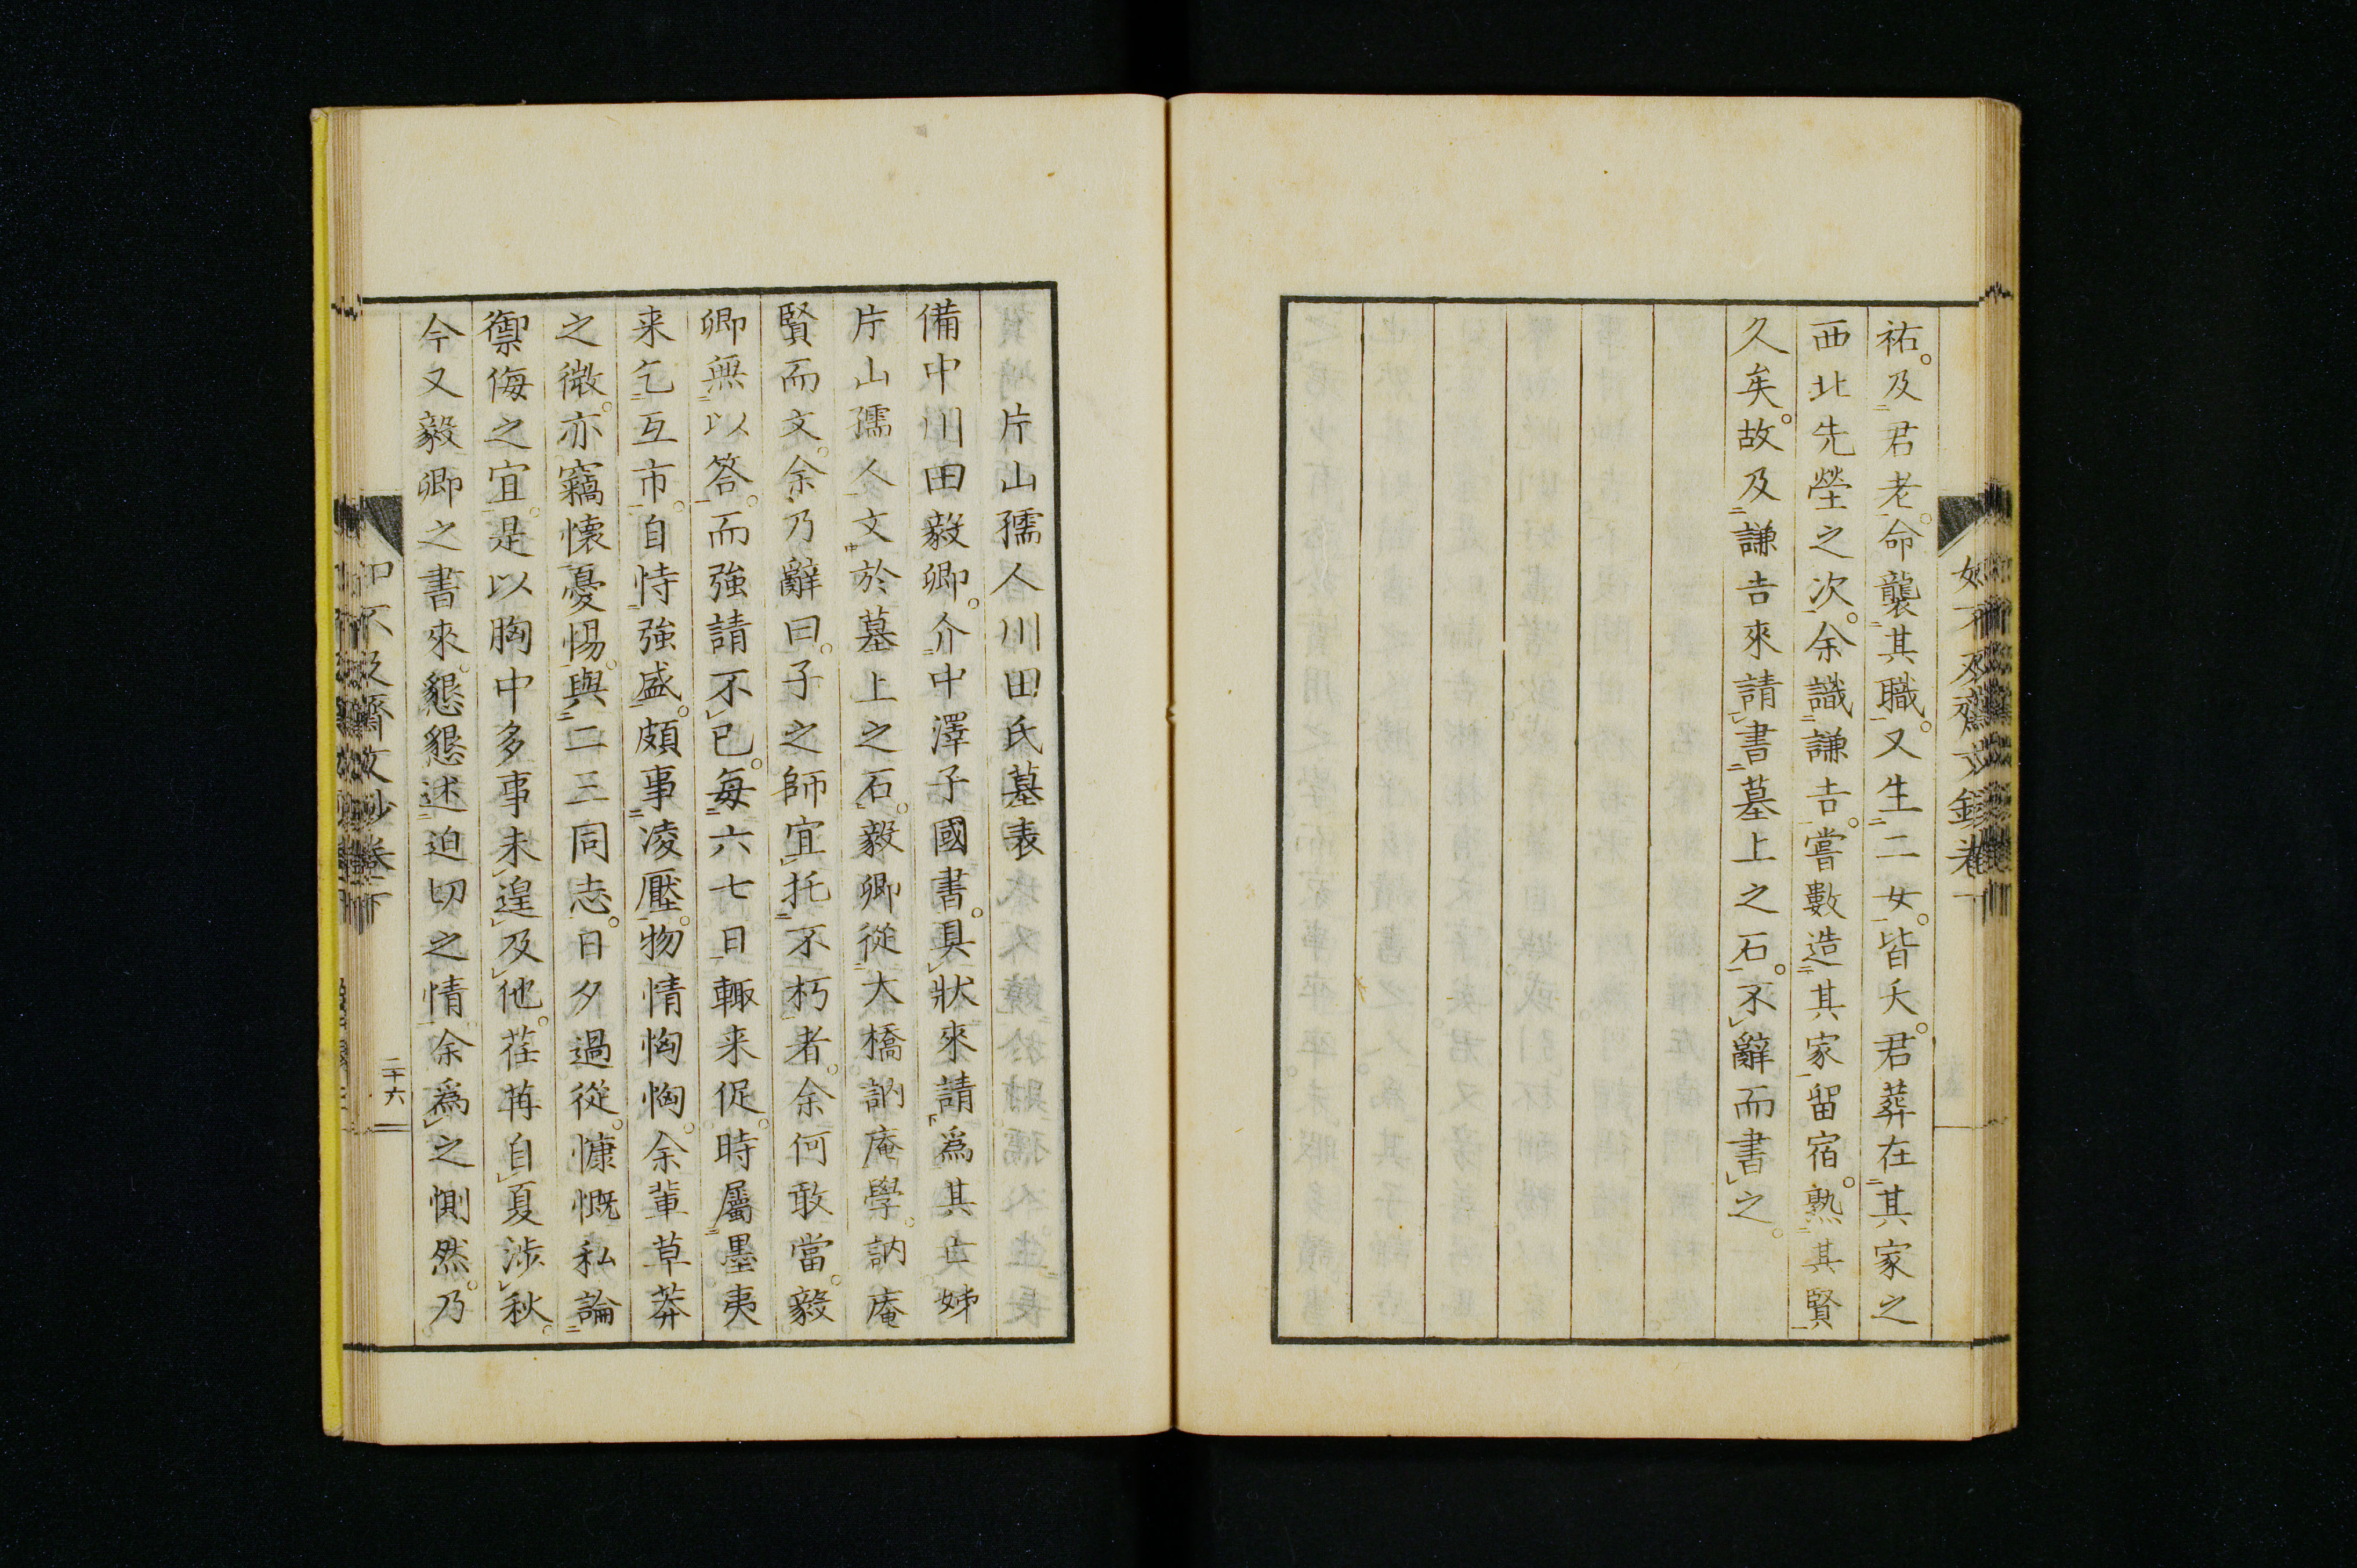 祐。及君老。命襲其職。又生二女。皆夭。君葬在其家之
西北先塋之次。余識謙吉。嘗數造其家留宿。熟其賢
久矣。故及謙吉來請書墓上之石。不辭而書之。
片山孺人川田氏墓表
備中川田毅卿。介中澤子國書。具狀來請為其亡姊
片山孺人文於墓上之石。毅卿從大橋訥庵學。訥庵
賢而文。余乃辭曰。子之師宜托不朽者。余何敢當。毅
卿無以答。而強請不已。每六七日輙来促。時屬墨夷
来乞互市。自恃強盛。頗事凌壓。物情恟恟。余輩草莽
之微。亦竊懷憂惕。與二三同志。日夕過從。慷慨私論
禦侮之宜。是以胸中多事未遑及他。荏苒自夏涉秋。
今又毅卿之書來。懇懇述迫切之情。余為之惻然。乃
二十六